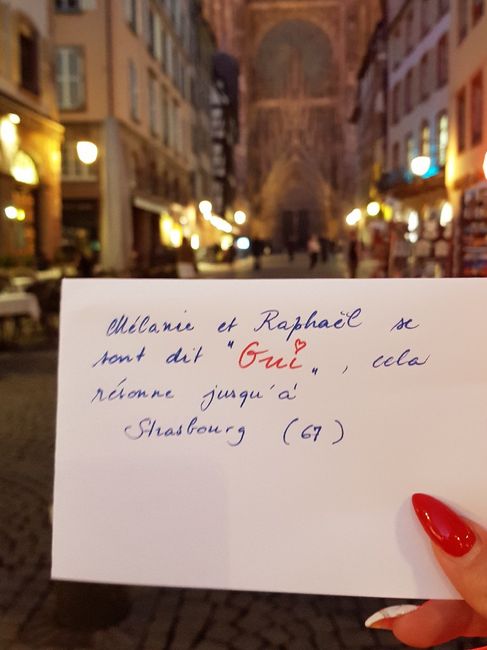 Mélanie et Raphaël se
sont dit "Oui„ , cela
résonne jusqu'à
Strasbourg (67)